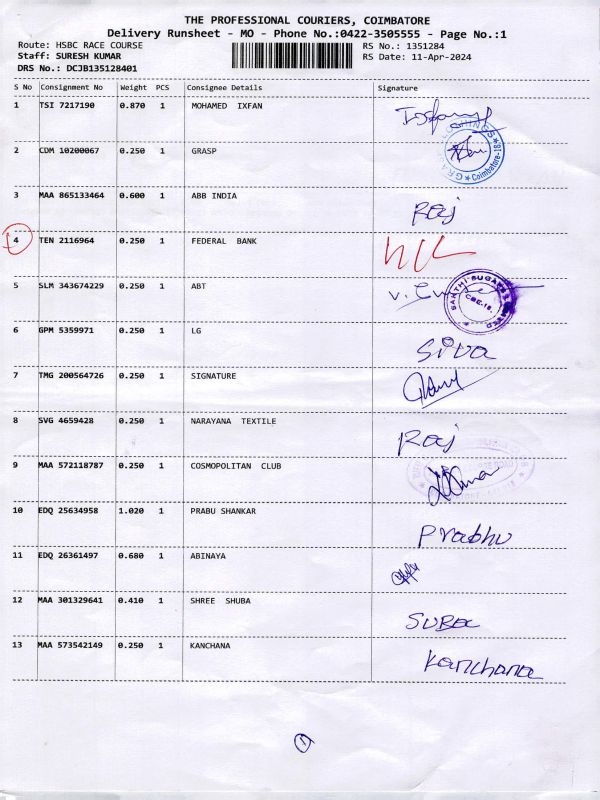 THE PROFESSIONAL COURIERS, COIMBATORE
Delivery Runsheet - MO - Phone No.:0422-3505555 - Page No.:1
Route: HSBC RACE COURSE RS No.: 1351284
Staff: SURESH KUMAR RS Date: 11-Apr-2024
DRS No.: DCJB135128401
S No Consignment No Weight PCS Consignee Details Signature
1 TSI 7217190 0.870 1 MOHAMED IXFAN
2 CDM 10200067 0.250 1 GRASP
Coimbatore-18
3 MAA 865133464 0.600 1 ABB INDIA Raj
4 TEN 2116964 0.250 1 FEDERAL BANK
5 SLM 343674229 0.250 1 ABT
SAKTHI SUGARS LIMITED
CBE-18.
6 GPM 5359971 0.250 1 LG Siva
7 TMG 200564726 0.250 1 SIGNATURE
8 SVG 4659428 0.250 1 NARAYANA TEXTILE Raj
9 MAA 572118787 0.250 1 COSMOPOLITAN CLUB
10 EDQ 25634958 1.020 1 PRABU SHANKAR Prabhu
11 EDQ 26361497 0.680 1 ABINAYA
12 MAA 301329641 0.410 1 SHREE SHUBA
13 MAA 573542149 0.250 1 KANCHANA Kanchana
1